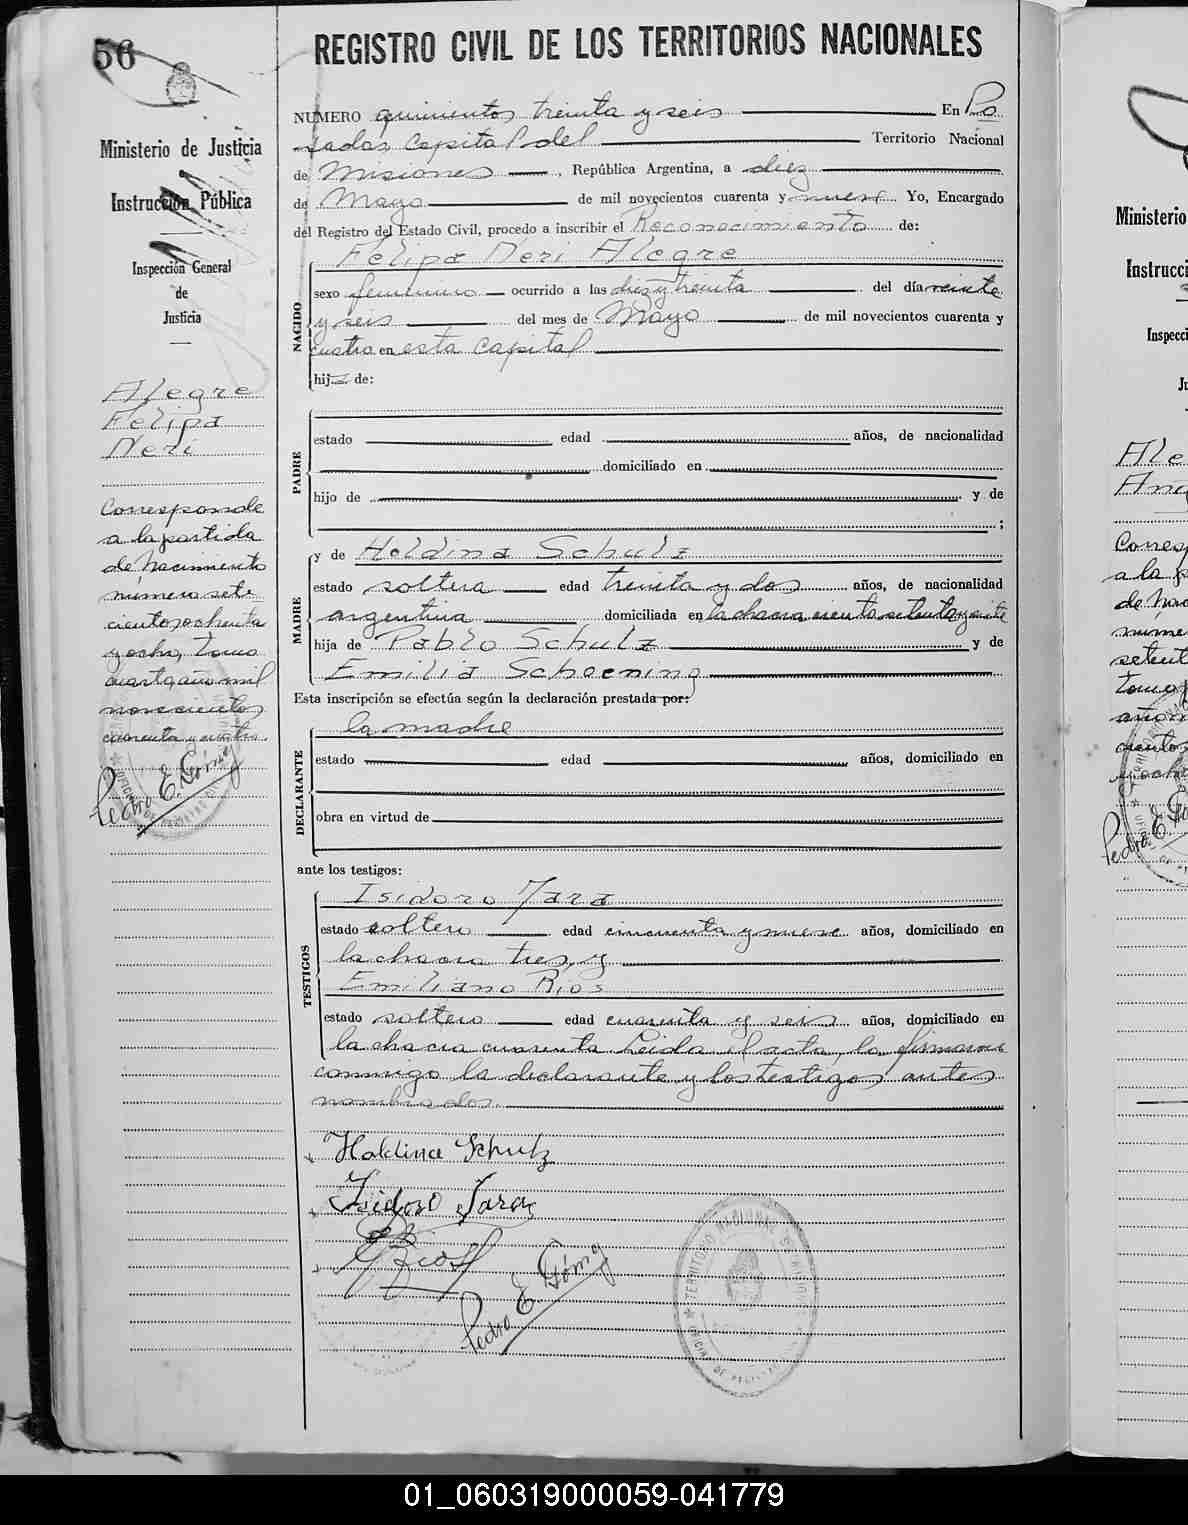 56
REGISTRO CIVIL DE LOS TERRITORIOS NACIONALES
Ministerio de Justicia
Instrucción Pública
Inspección General
de
Justicia
Alegre
Felipa
Neri
Corresponde
a la partida
de Nacimiento
número sete
cientos ochenta
y ocho, tomo
cuarto año mil
novecientos
cuarenta y cuatro.
Pedro E. Gómez
NUMERO quinientos treinta y seis En Po
sadas Capital del Territorio Nacional
de Misiones, República Argentina, a diez
de Mayo de mil novecientos cuarenta y nueve Yo, Encargado
del Registro del Estado Civil, procedo a inscribir el Reconocimiento de:
NACIDO
Felipa Neri Alegre
sexo femenino ocurrido a las diez y treinta del día veinte
y seis del mes de Mayo de mil novecientos cuarenta y
cuatro en esta capital
hij de:
PADRE
estado edad años, de nacionalidad
domiciliado en
hijo de y de
;
MADRE
y de Holdina Schulz
estado soltera edad treinta y dos años, de nacionalidad
argentina domiciliada en la chacra ciento setenta y siete
hija de Pablo Schulz y de
Emilia Schoening
Esta inscripción se efectúa según la declaración prestada por:
DECLARANTE
la madre
estado edad años, domiciliado en
obra en virtud de
ante los testigos:
TESTIGOS
Isidoro Jara
estado soltero edad cincuenta y nueve años, domiciliado en
la chacra tres, y
Emiliano Rios
estado soltero edad cuarenta y seis años, domiciliado en
la chacra cuarenta Leida el acta, la firmaron
conmigo la declarante y los testigos antes
nombrados.
Holdina Schulz
Isidoro Jara
E Rios
Pedro E. Gómez
TERRITORIO NACIONAL DE MISIONES
Ministerio
Instrucci
Inspecci
Ju
Ale
Corresp
a la p
de Nac
núme
setent
tomo
año m
ciento
Pedro E. Gó
01_060319000059-041779